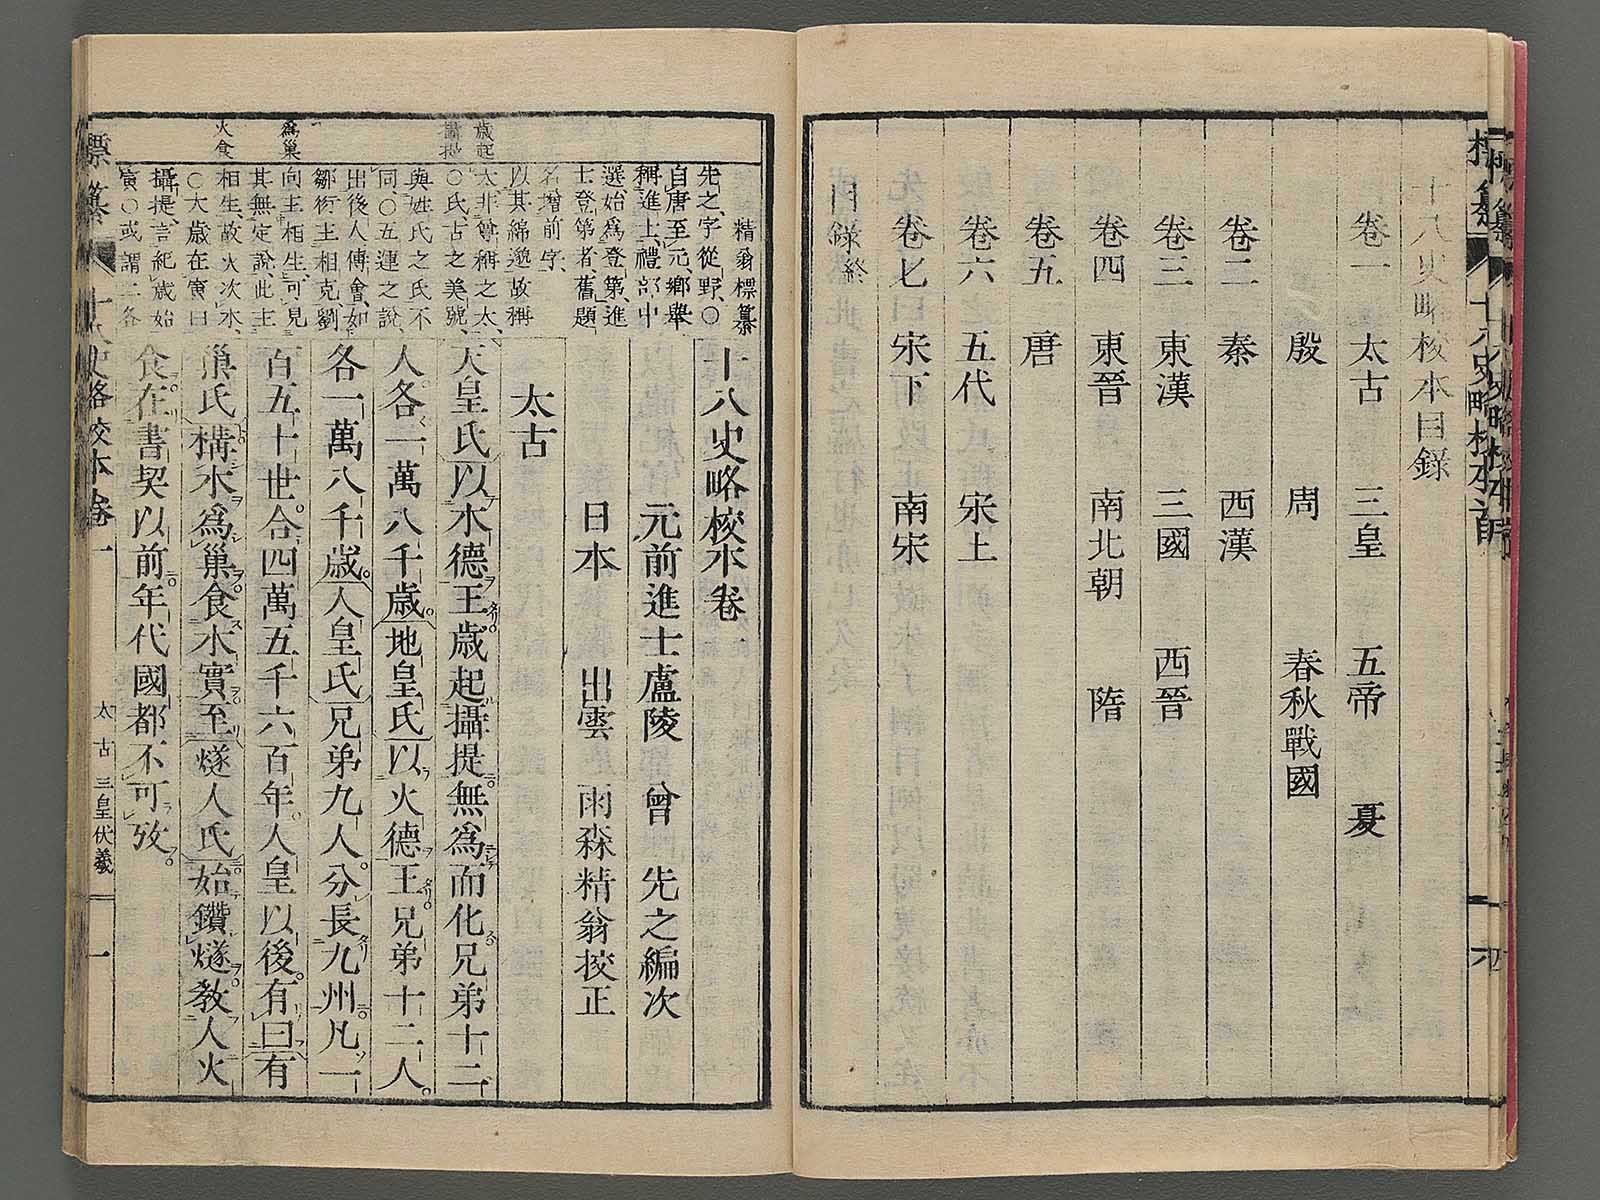 十八史略校本目錄
卷一 太古 三皇 五帝 夏
殷 周 春秋戰國
卷二 秦 西漢
卷三 東漢 三國 西晉
卷四 東晉 南北朝 隋
卷五 唐
卷六 五代 宋上
卷七 宋下 南宋
目錄終
精翁標纂
先之、字從野、○
自唐至元、鄉舉
稱進士、禮部中
選始爲登第、進
士登第者、舊題
名增前字、
以其綿邈故稱
太、非尊稱之太、
○氏、古之美號、
與姓氏之氏不
同○五運之說、
出後人傅會、如
鄒衍主相克、劉
向主相生、可見
其無定說、此主
相生、故火次木、
○太歲在寅曰
攝提、言紀歲始
寅○或謂二各
歲起
攝提
爲巢
火食
十八史略校本卷一
元前進士廬陵 曾 先之編次
日本 出雲 雨森精翁挍正
太古
天皇氏以木德王歲起攝提無爲而化兄弟十二
人各一萬八千歲地皇氏以火德王兄弟十二人
各一萬八千歲人皇氏兄弟九人分長九州凡一
百五十世合四萬五千六百年人皇以後有曰有
巢氏構木爲巢食木實至燧人氏始鑽燧敎人火
食在書契以前年代國都不可攷
標纂 十八史略校本卷一 太古 三皇伏羲 一